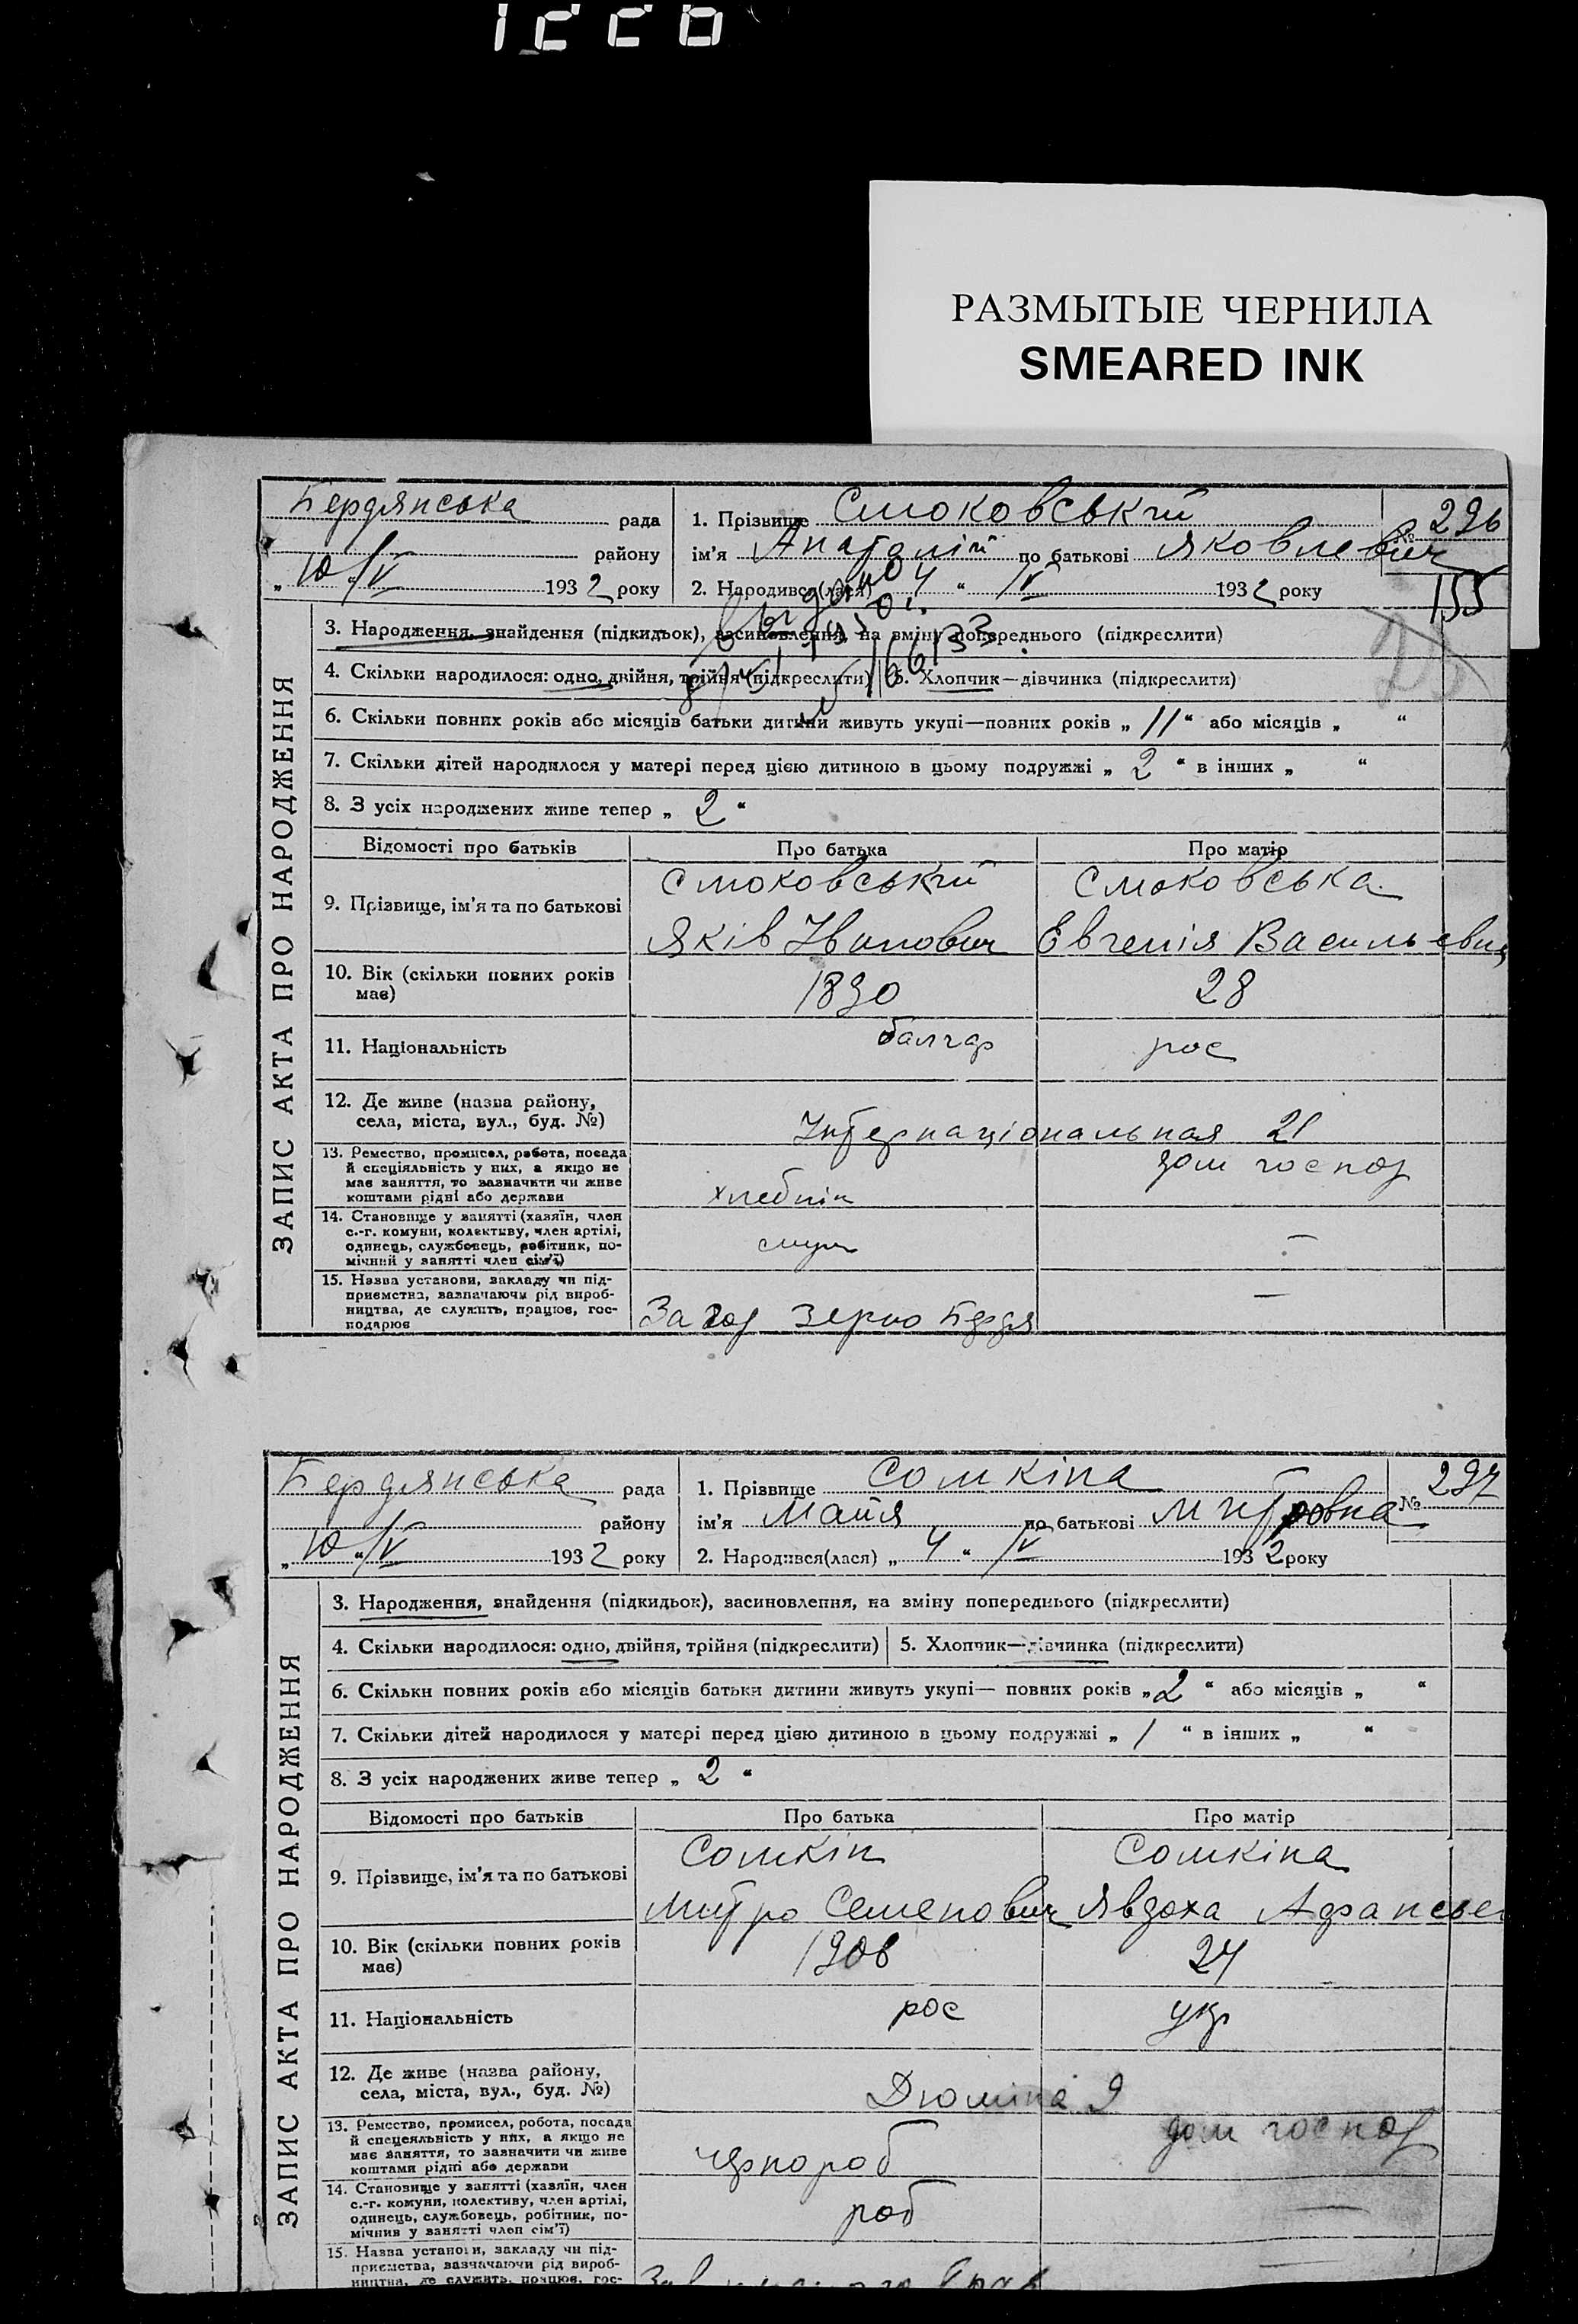 РАЗМЫТЫЕ ЧЕРНИЛА
SMEARED INK
Бердянська рада
району
„ 10 “ IV 1932 року
1. Прізвище Смоковський
ім’я Анатолій по батькові Яковлевич
2. Народився(лася) 4 “ IV 1932 року
№ 296
155
видано
16633
ЗАПИС АКТА ПРО НАРОДЖЕННЯ
3. Народження, знайдення (підкидьок), засиновлення, на зміну попереднього (підкреслити)
4. Скільки народилося: одно, двійня, трійня (підкреслити) 5. Хлопчик—дівчинка (підкреслити)
6. Скільки повних років або місяців батьки дитини живуть укупі—повних років „ 11 “ або місяців „ “
7. Скільки дітей народилося у матері перед цією дитиною в цьому подружжі „ 2 “ в інших „ “
8. З усіх народжених живе тепер „ 2 “
Відомості про батьків Про батька Про матір
9. Прізвище, ім’я та по батькові
Смоковський Смоковська
Яків Іванович Евгенія Васильевна
10. Вік (скільки повних років має) 1890 28
11. Національність болгар рос
12. Де живе (назва району, села, міста, вул., буд. №)
Інтернаціональная 21
13. Ремество, промисел, робота, посада
й спеціяльність у них, а якщо не
має заняття, то зазначити чи живе
коштами рідні або держави
хлебнік дом господ
14. Становище у занятті (хазяїн, член
с.-г. комуни, колективу, член артілі,
одинець, службовець, робітник, по-
мічний у занятті член сім’ї)
служ —
15. Назва установи, закладу чи під-
приємства, зазначаючи рід вироб-
ництва, де служить, працює, гос-
подарює
Загод зерно —
Бердянська рада
району
„ 10 “ IV 1932 року
1. Прізвище Сомкіна
ім’я Майя по батькові Митровна
2. Народився(лася) „ 4 “ IV 1932 року
№ 297
ЗАПИС АКТА ПРО НАРОДЖЕННЯ
3. Народження, знайдення (підкидьок), засиновлення, на зміну попереднього (підкреслити)
4. Скільки народилося: одно, двійня, трійня (підкреслити) 5. Хлопчик—дівчинка (підкреслити)
6. Скільки повних років або місяців батьки дитини живуть укупі— повних років „ 2 “ або місяців „ “
7. Скільки дітей народилося у матері перед цією дитиною в цьому подружжі „ 1 “ в інших „ “
8. З усіх народжених живе тепер „ 2 “
Відомості про батьків Про батька Про матір
9. Прізвище, ім’я та по батькові
Сомкін Сомкіна
Митро Семенович Явдоха
10. Вік (скільки повних років має) 1908 24
11. Національність рос укр
12. Де живе (назва району, села, міста, вул., буд. №)
Дюміна 9
13. Ремество, промисел, робота, посада
й спецеяльність у них, а якщо не
має заняття, то зазначити чи живе
коштами рідні або держави
чернороб дом господ
14. Становище у занятті (хазяїн, член
с.-г. комуни, колективу, член артілі,
одинець, службовець, робітник, по-
мічник у занятті член сім’ї)
роб —
15. Назва установи, закладу чи під-
приємства, зазначаючи рід вироб-
ництва, де служить, працює, гос-